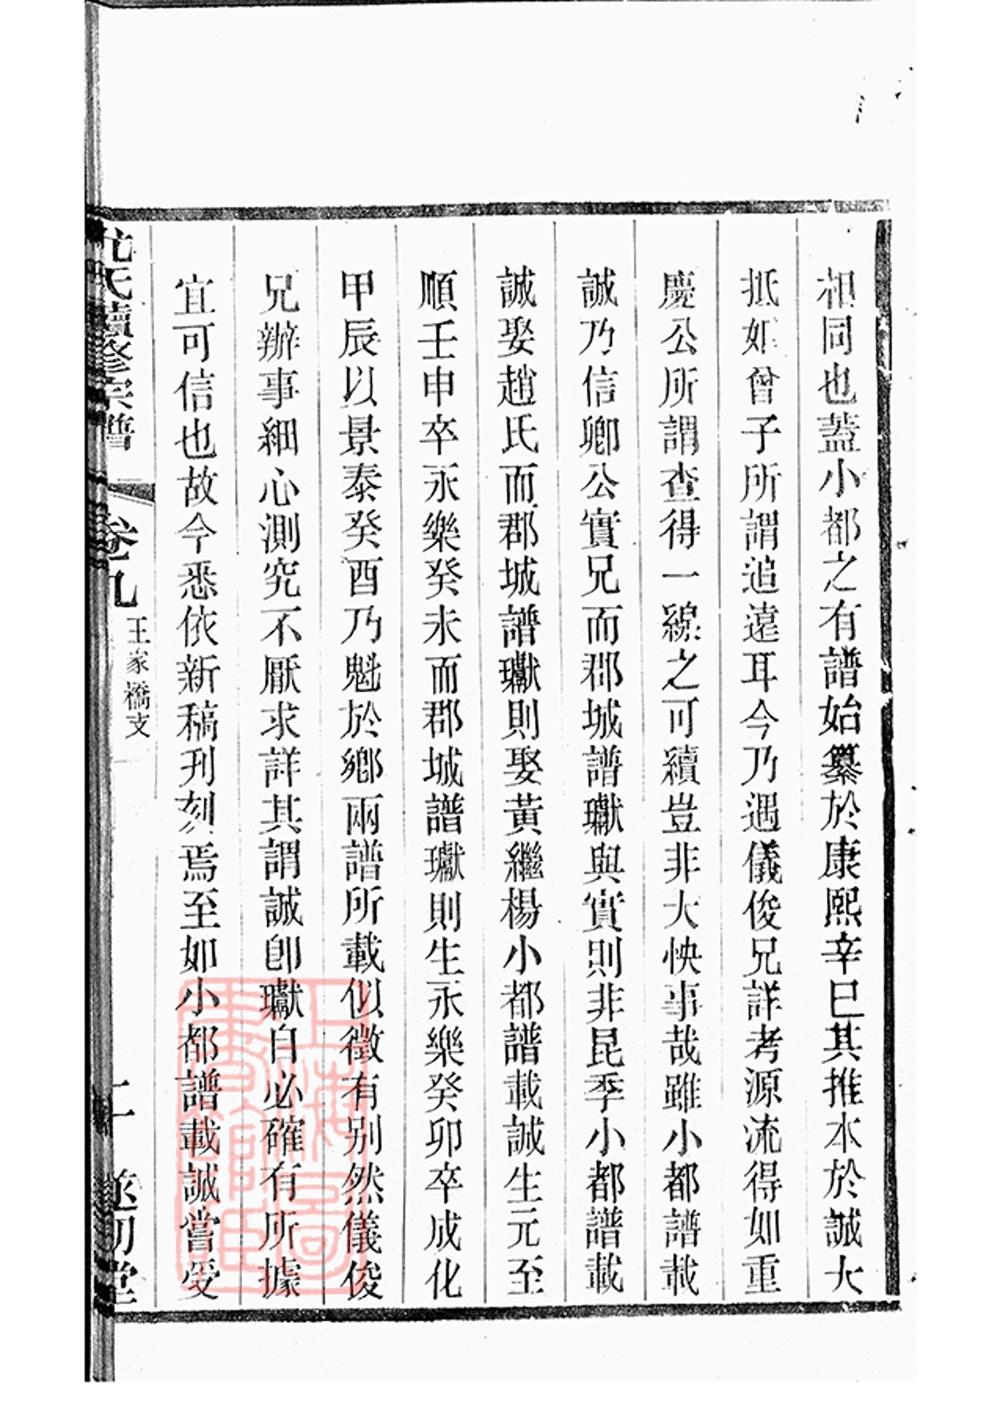 相同也蓋小都之有譜始纂於康熙辛巳其推本於誠大
抵如曾子所謂追遠耳今乃遇儀俊兄詳考源流得如重
慶公所謂查得一線之可續豈非大快事哉雖小都譜載
誠乃信卿公實兄而郡城譜瓛與實則非昆季小都譜載
誠娶趙氏而郡城譜瓛則娶黃繼楊小都譜載誠生元至
順壬申卒永樂癸未而郡城譜瓛則生永樂癸卯卒成化
甲辰以景泰癸酉乃魁於鄉兩譜所載似徵有別然儀俊
兄辦事細心測究不厭求詳其謂誠卽瓛自必確有所據
宜可信也故今悉依新稿刋刻焉至如小都譜載誠嘗受
尤氏續修宗譜
卷九
王家橋支
二
遂初堂
上海圖書館藏